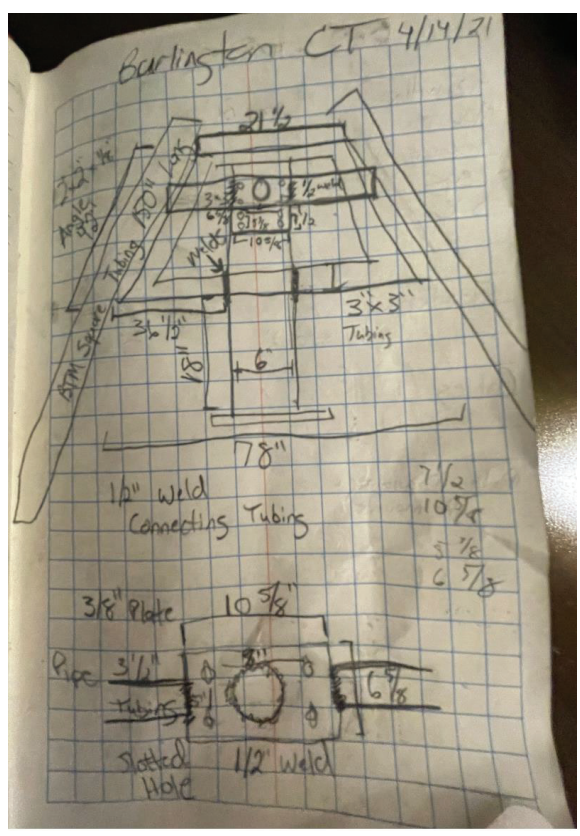 Burlington CT 4/14/21
21 1/2
2" x 2" x 1/8"
Angle
150" Long
BTM Square Tubing
1/2 weld
3"
6 5/8
10 5/8
Weld
36 1/2"
3" x 3"
Tubing
18"
6"
78"
1/2" Weld
Connecting Tubing
7 1/2
10 5/8
5 7/8
6 5/8
3/8" Plate
10 5/8"
Pipe 3 1/2"
Tubing
5"
6 5/8
Slotted
Hole
1/2" Weld